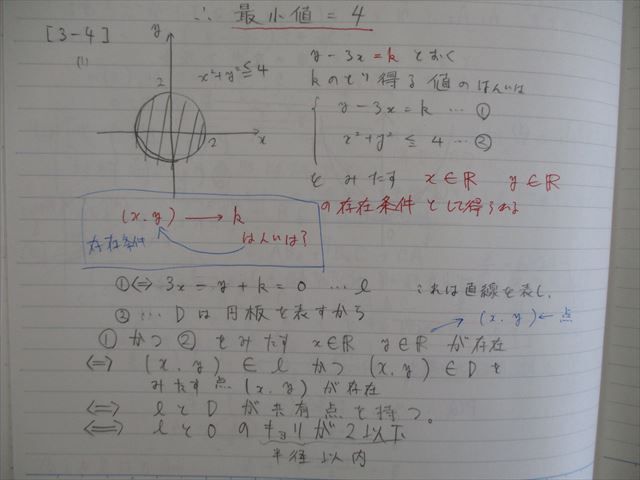 ∴ 最小値 = 4
[3-4]
(1)
y
x²+y²≦4
2
2
x
y-3x=k とおく
kのとり得る値のはんいは
y-3x=k … ①
x²+y²≦4 … ②
を みたす x∈ℝ y∈ℝ
の存在条件として得られる
(x,y) → k
存在条件 はんいは?
①⇔ 3x-y+k=0 … l これは直線を表し、
②… Dは円板を表すから
(x,y)←点
① かつ ② をみたす x∈ℝ y∈ℝ が存在
⇔ (x,y)∈l かつ (x,y)∈Dを
みたす点(x,y)が存在
⇔ lとDが共有点を持つ。
⇔ lとOのキョリが2以下
半径以内